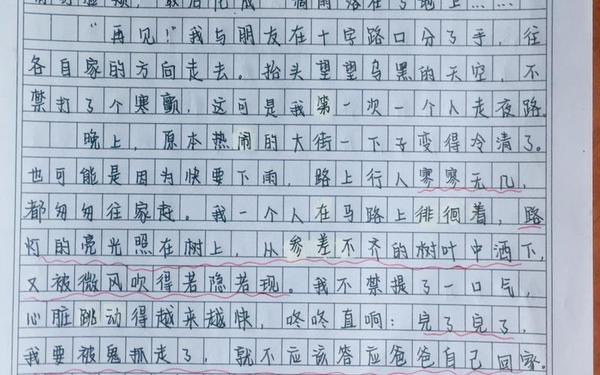 "再见!"我与朋友在十字路口分了手,往
各自家的方向走去。抬头望望乌黑的天空,不
禁打了个寒颤,这可是我第一次一个人走夜路。
晚上,原本热闹的大街一下子变得冷清了。
也可能是因为快要下雨,路上行人寥寥无几,
都匆匆往家赶。我一个人在马路上徘徊着,路
灯的亮光照在树上,从参差不齐的树叶中洒下,
又被微风吹得若隐若现。我不禁提了一口气,
心脏跳动得越来越快,咚咚直响:完了完了,
我要被鬼抓走了,就不应该答应爸爸自己回家。